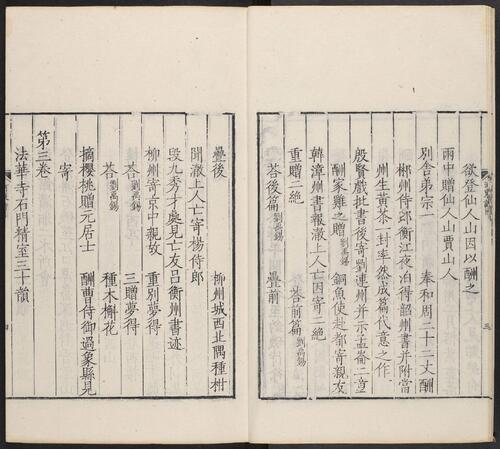 欲登仙人山因以酬之
雨中贈仙人山賈山人
別舍弟宗一　奉和周二十二丈酬
郴州侍郎衡江夜泊得韶州書并附當
州生黃茶一封率然成篇代意之作
殷賢戲批書後寄劉連州并示孟崙二童
酬家雞之贈劉禹錫　銅魚使赴都寄親友
韓漳州書報澈上人亡因寄二絶
重贈二絶　荅前篇劉禹錫
荅後篇劉禹錫　疊前
疊後　柳州城西北隅種柑
聞澈上人亡寄楊侍郎
段九秀才處見亡友呂衡州書迹
柳州寄京中親故
荅劉禹錫　重別夢得
荅劉禹錫　三贈夢得
摘櫻桃贈元居士　種木槲花
酬曹侍御過象縣見
寄
第三卷
法華寺石門精室三十韻
三
四